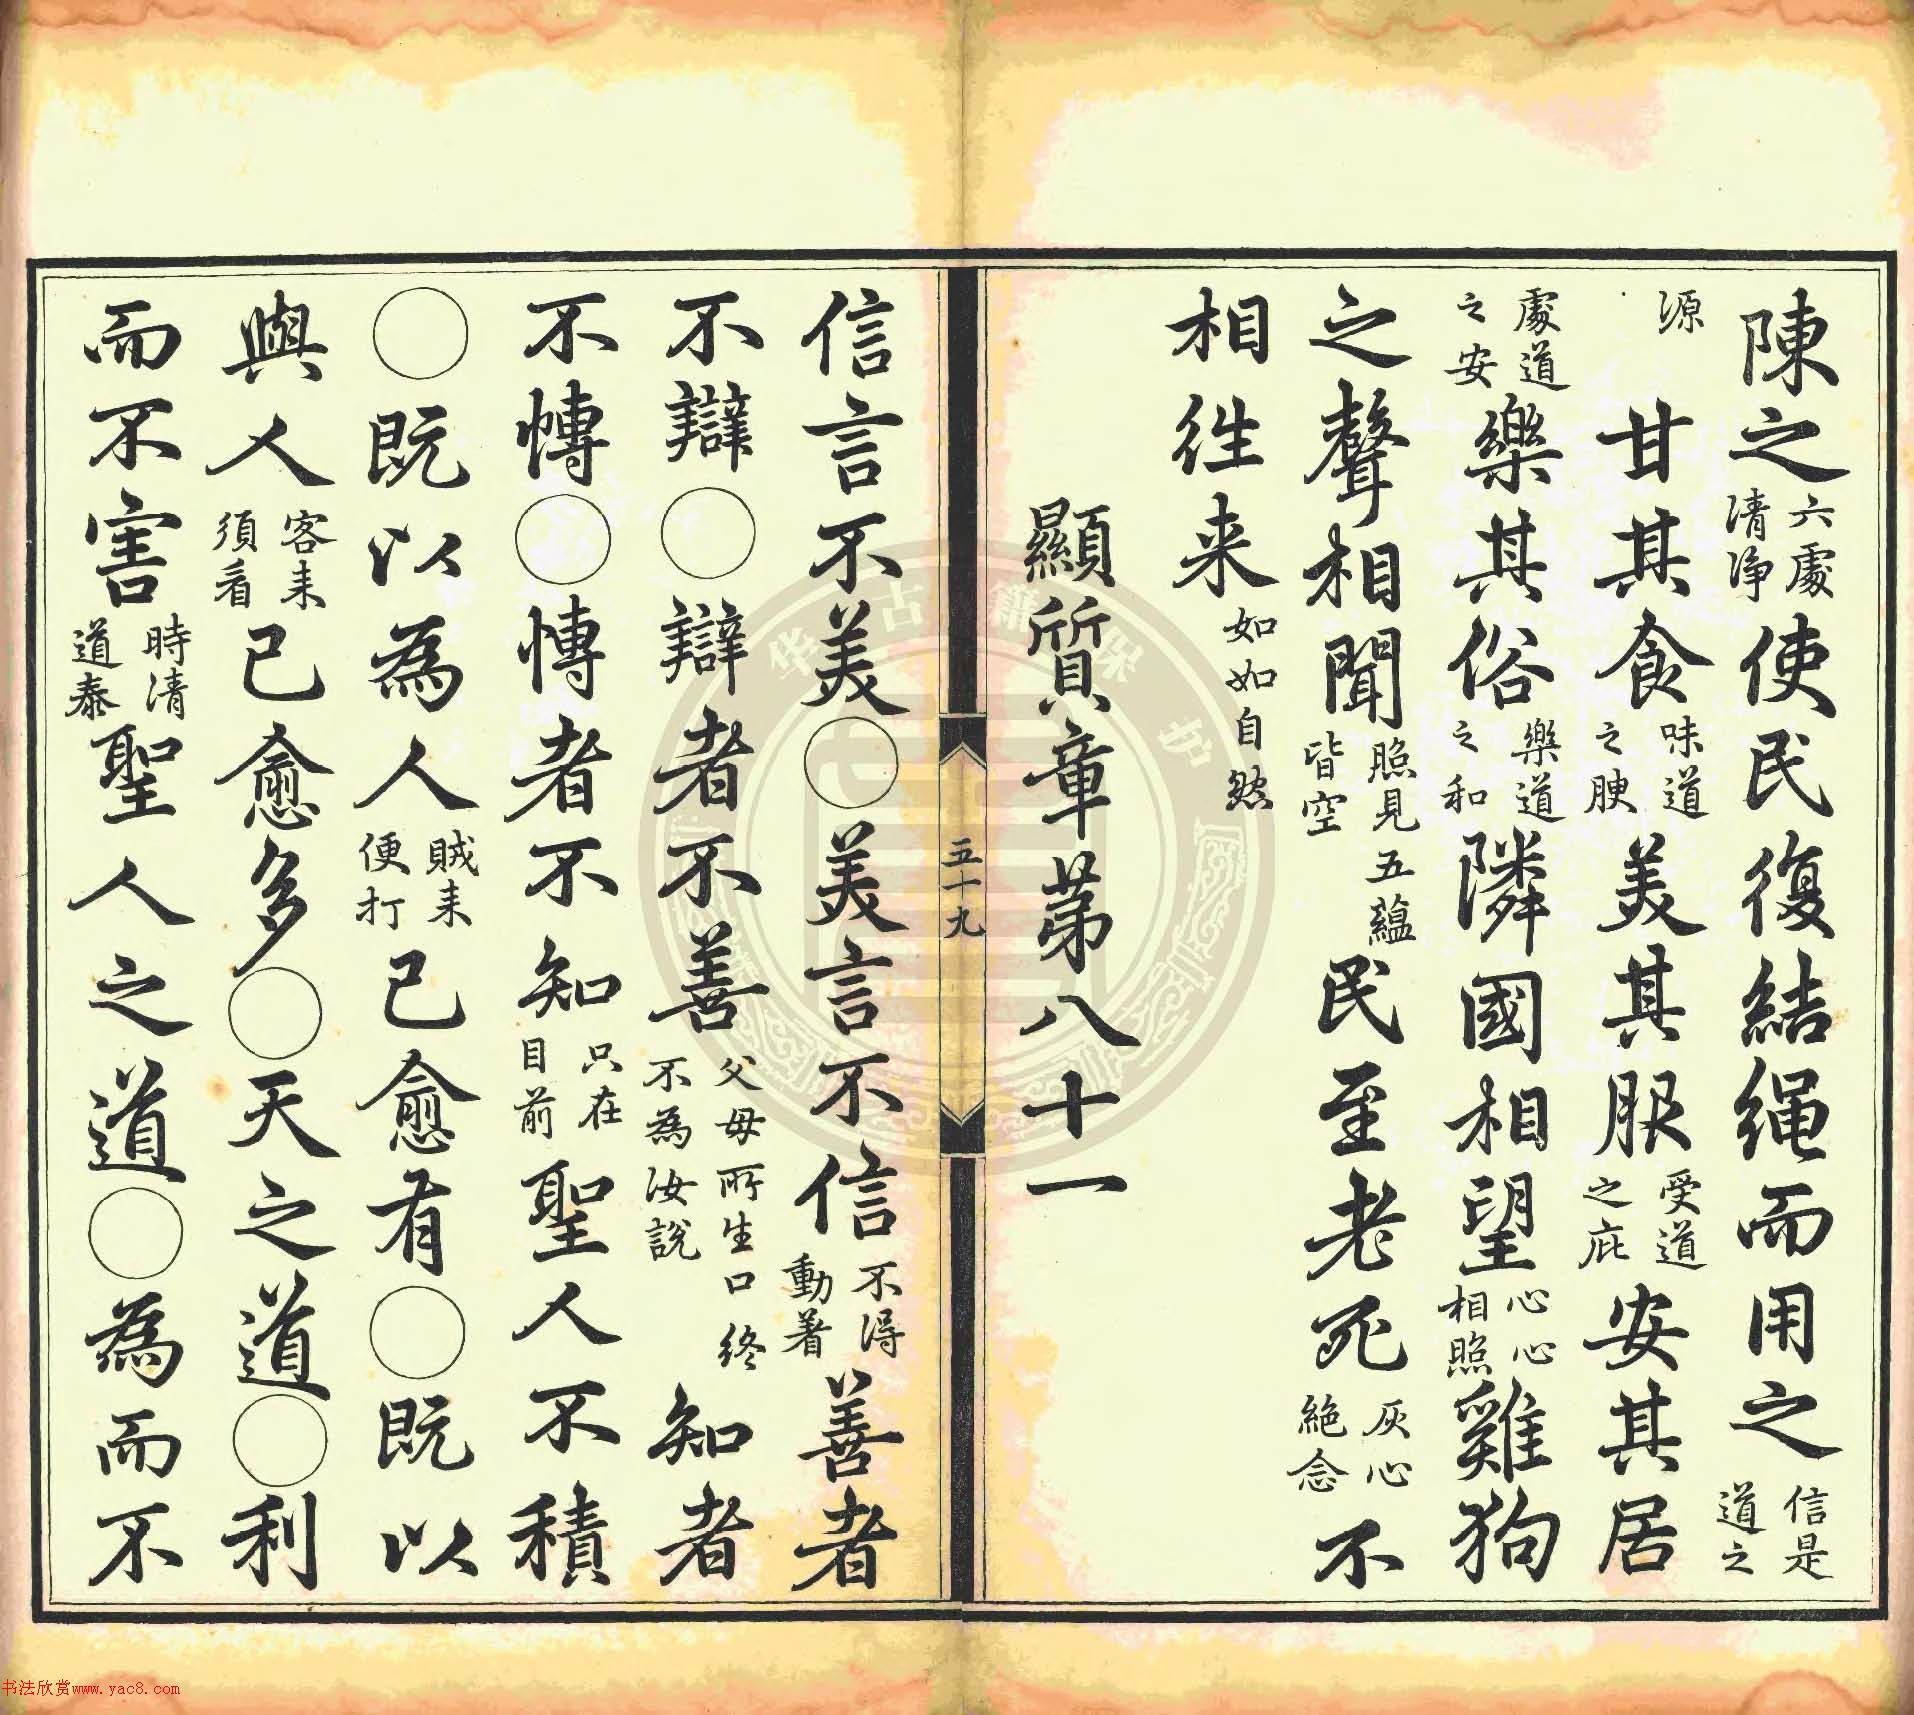 陳之六處清淨使民復結繩而用之信是道之
源甘其食味道之腴美其服受道之庇安其居
處道之安樂其俗樂道之和隣國相望心心相照雞狗
之聲相聞照見五蘊皆空民至老死灰心絕念不
相徃来如如自然
顯質章苐八十一
五十九
信言不美○美言不信不得動着善者
不辯○辯者不善父母所生口終不為汝說知者
不愽○愽者不知只在目前聖人不積
○既以為人賊耒便打己愈有○既以
與人客耒須看己愈多○天之道○利
而不害時清道泰聖人之道○為而不
华古籍保护
书法欣赏www.yac8.com